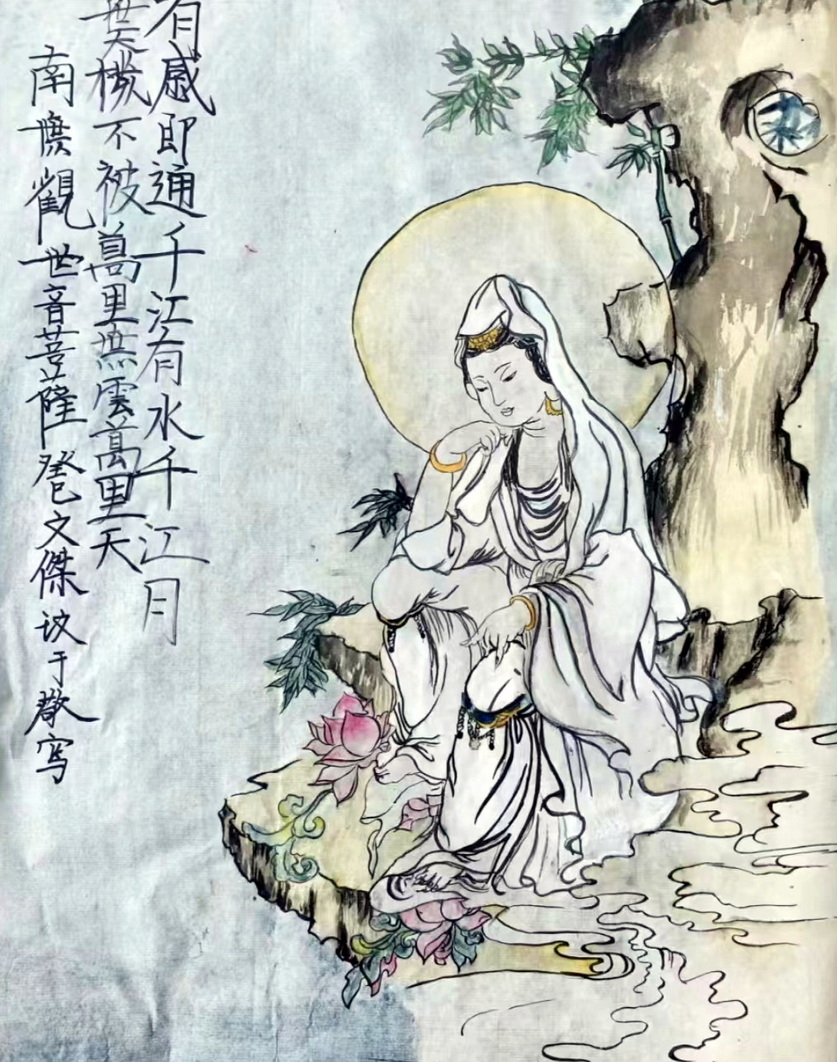 有感即通千江有水千江月
機不被萬里無雲萬里天
南無觀世音菩薩癸巳文傑于敬写